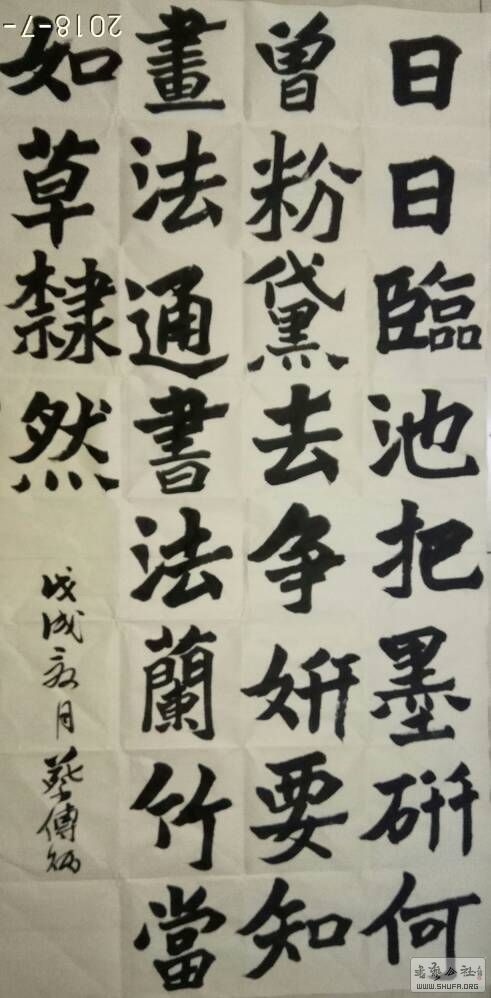 日日臨池把墨研何
曾粉黛去争妍要知
畫法通書法蘭竹當
如草隸然
戊戌
月
2018-7-
WWW.SHUFA.ORG